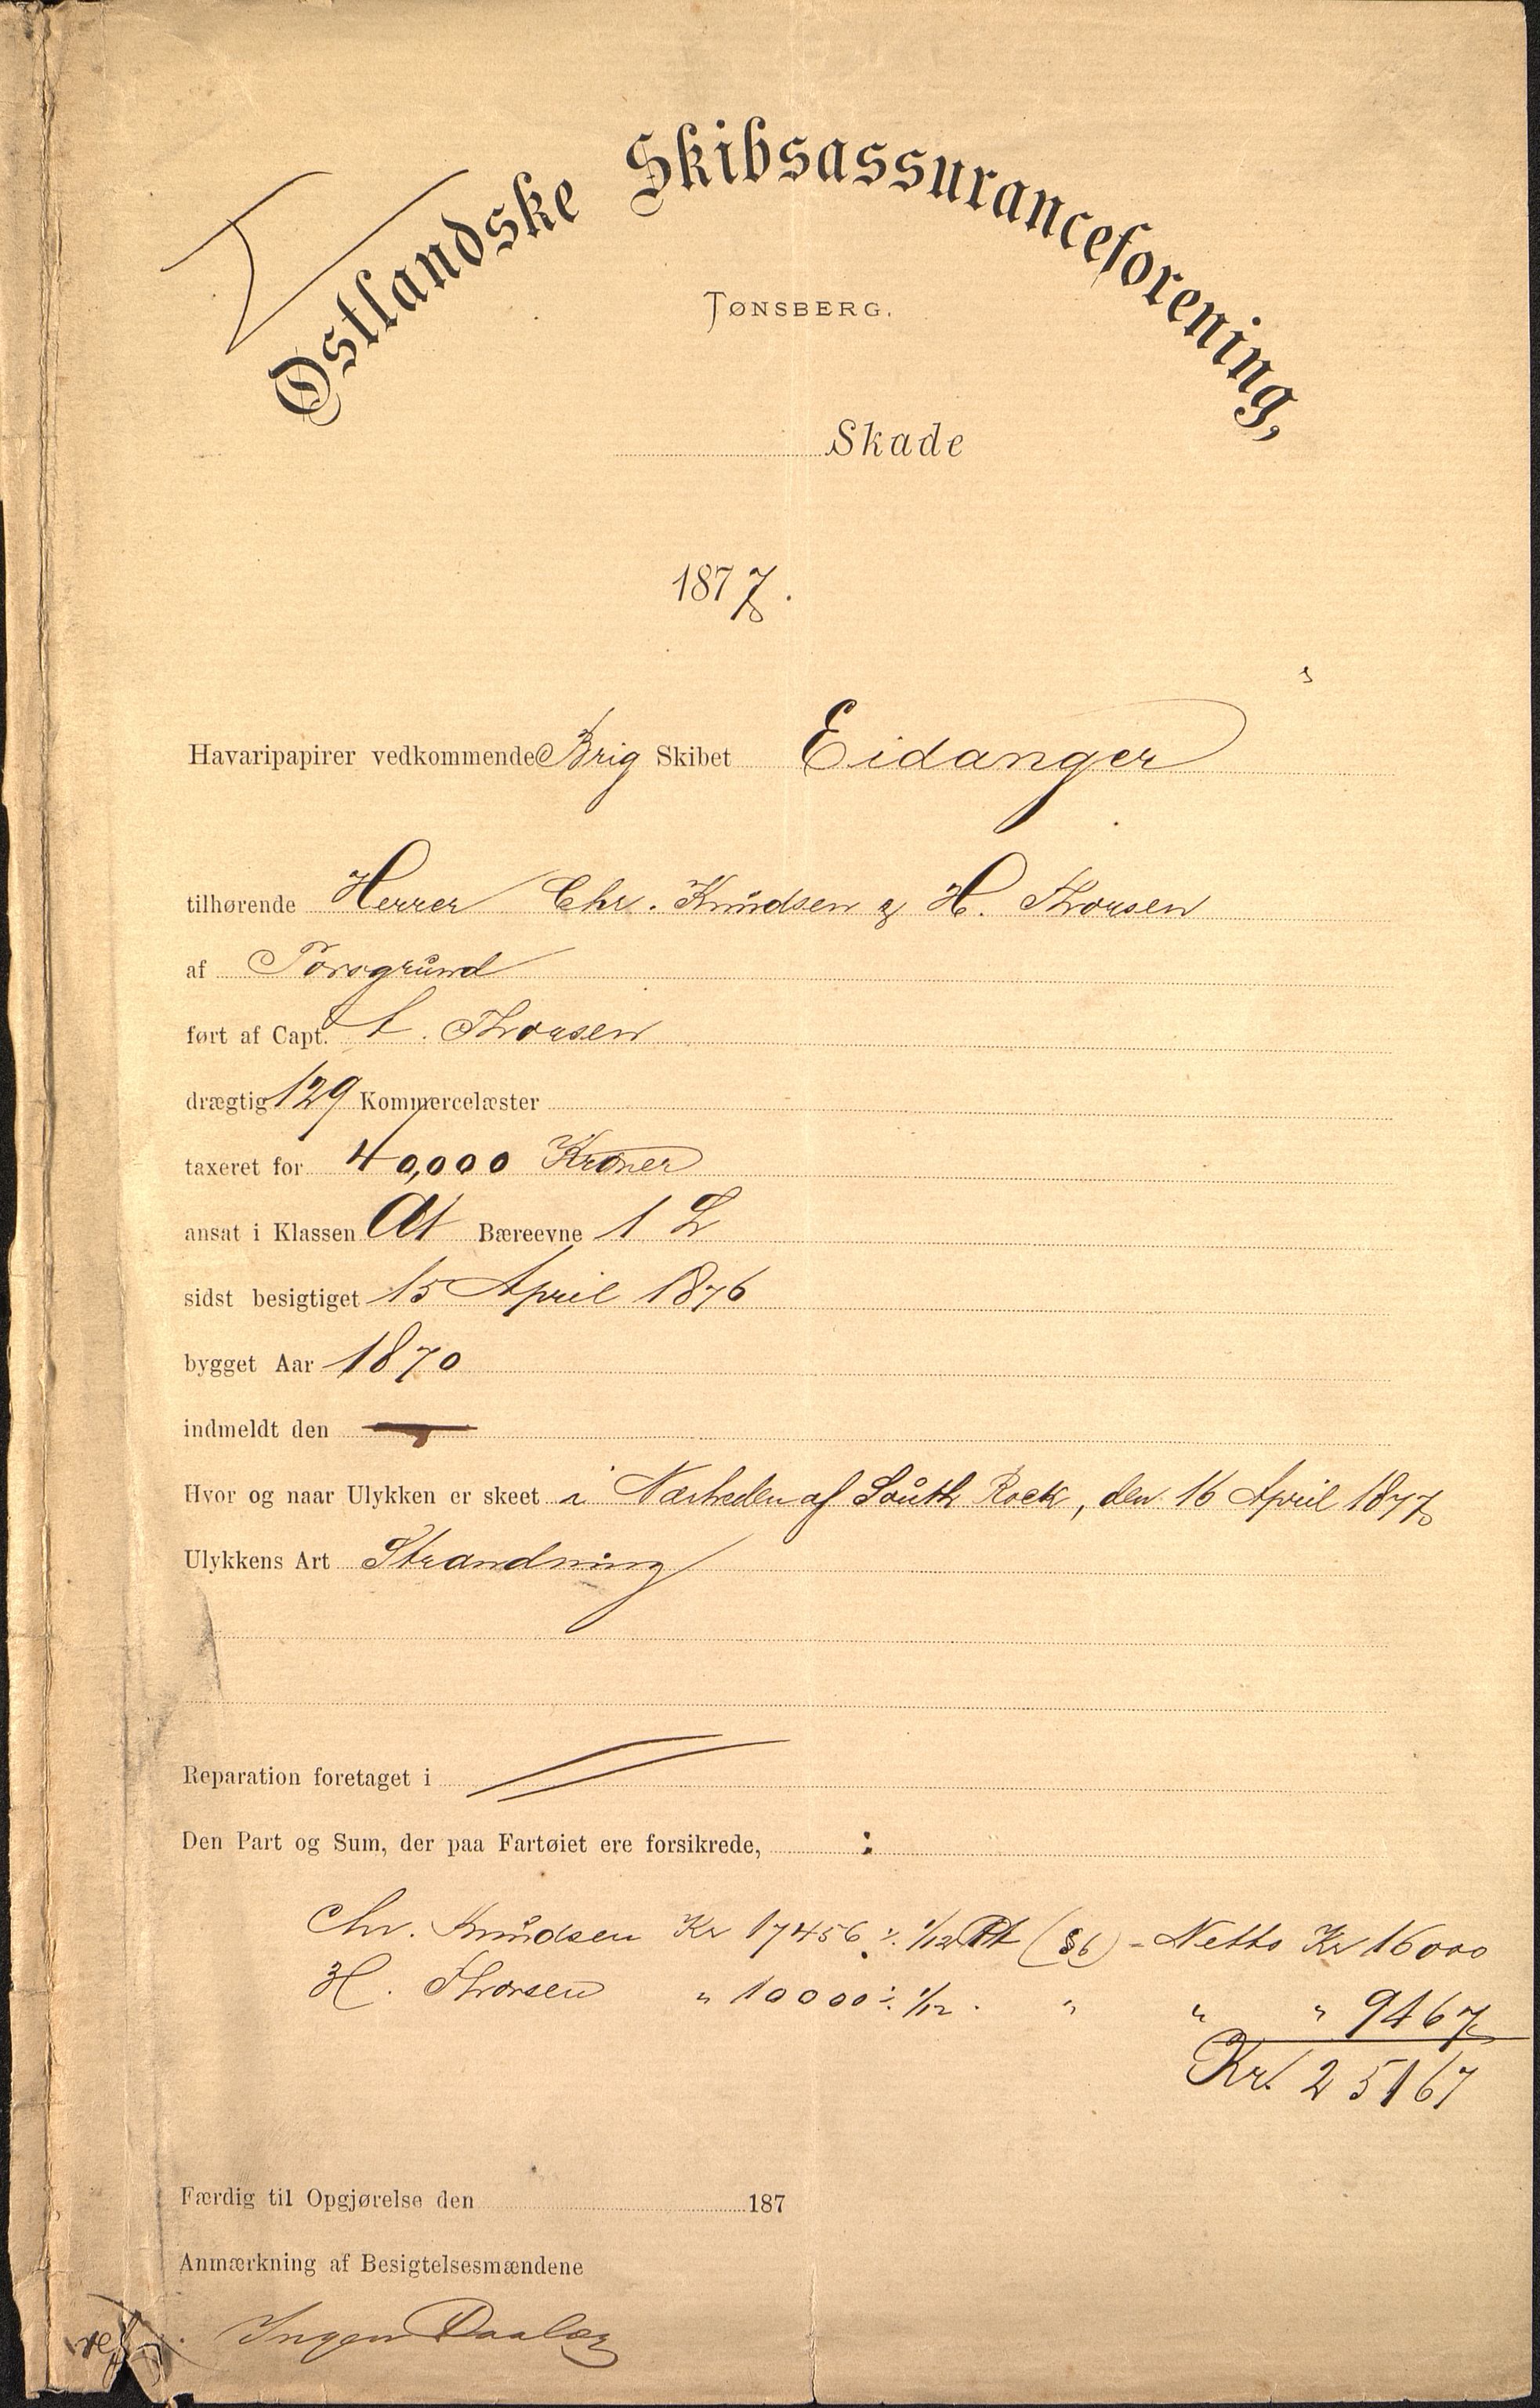 Østlandske Skibsassuranceforening,
TØNSBERG.
Skade
1877.
Havaripapirer vedkommende Brig Skibet Eidanger
tilhørende Herrer Chr. Knudsen & H. Thorsen
af Porsgrund
ført af Capt. Thorsen
drægtig 129 Kommercelæster
taxeret for 40,000 Kroner
ansat i Klassen A1 Bæreevne 1 L
sidst besigtiget 15 April 1876
bygget Aar 1870
indmeldt den —
Hvor og naar Ulykken er skeet i Nærheden af South Rock, den 16 April 1877
Ulykkens Art Strandning
Reparation foretaget i
Den Part og Sum, der paa Fartøiet ere forsikrede, :
Chr. Knudsen Kr 17456 ⁒ 1/12 Pt (§6) - Netto Kr 16000
H. Thorsen " 10000 ⁒ 1/12 . " " " 9467
Kr. 25167
Færdig til Opgjørelse den 187
Anmærkning af Besigtelsesmændene
Ingen